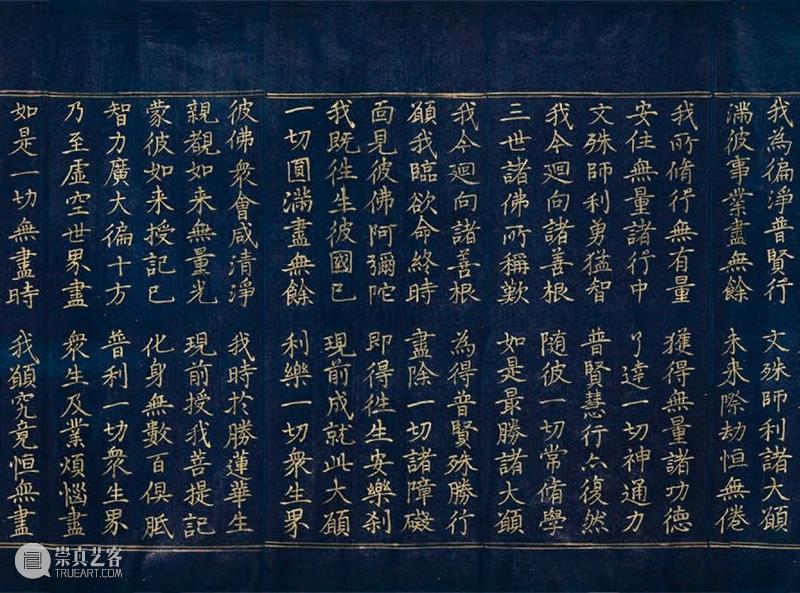 我為徧淨普賢行 文殊師利諸大願
滿彼事業盡無餘 未来際劫恒無倦
我所脩行無有量 獲得無量諸功德
安住無量諸行中 了達一切神通力
文殊師利勇猛智 普賢慧行亦復然
我今迴向諸善根 隨彼一切常脩學
三世諸佛所稱歎 如是最勝諸大願
我今迴向諸善根 為得普賢殊勝行
願我臨欲命終時 盡除一切諸障礙
面見彼佛阿彌陀 即得往生安樂刹
我既往生彼國已 現前成就此大願
一切圓滿盡無餘 利樂一切衆生界
彼佛衆會咸清淨 我時於勝蓮華生
親覩如来無量光 現前授我菩提記
蒙彼如来授記已 化身無數百俱胝
智力廣大徧十方 普利一切衆生界
乃至虛空世界盡 衆生及業煩惱盡
如是一切無盡時 我願究竟恒無盡
崇真艺客
TRUEART.COM